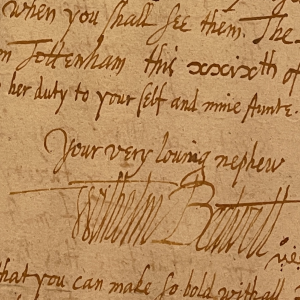 when you shall see them. The
Tottenham this xxxixth of
her duty to your self and mine Aunte.
Your very louing nephew
Wilhelm Bedwell
that you can make so bold withall